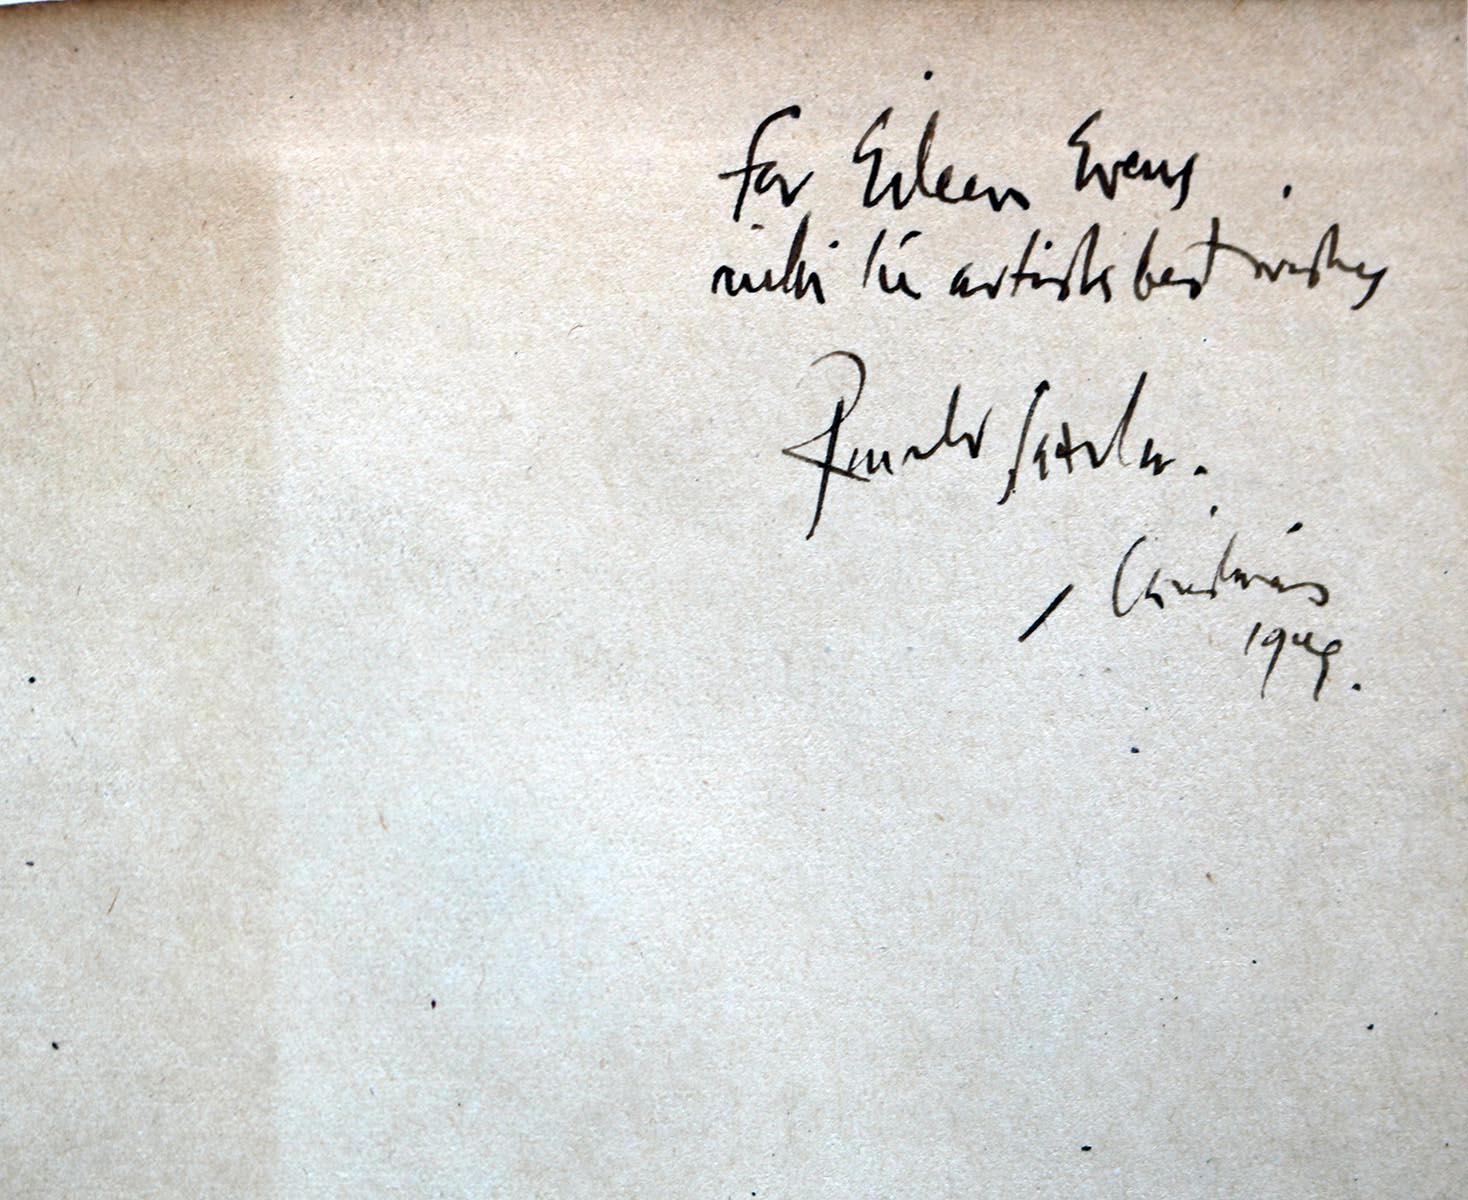 For Eileen Evans
with the artists best wishes
Ronald Searle.
Christmas
1949.